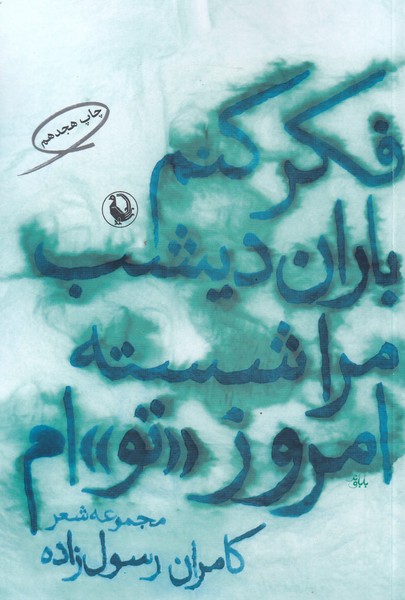 چاپ هجدهم
فکر کنم
باران دیشب
مرا شسته
امروز «تو»ام
مجموعه شعر
کامران رسول‌زاده